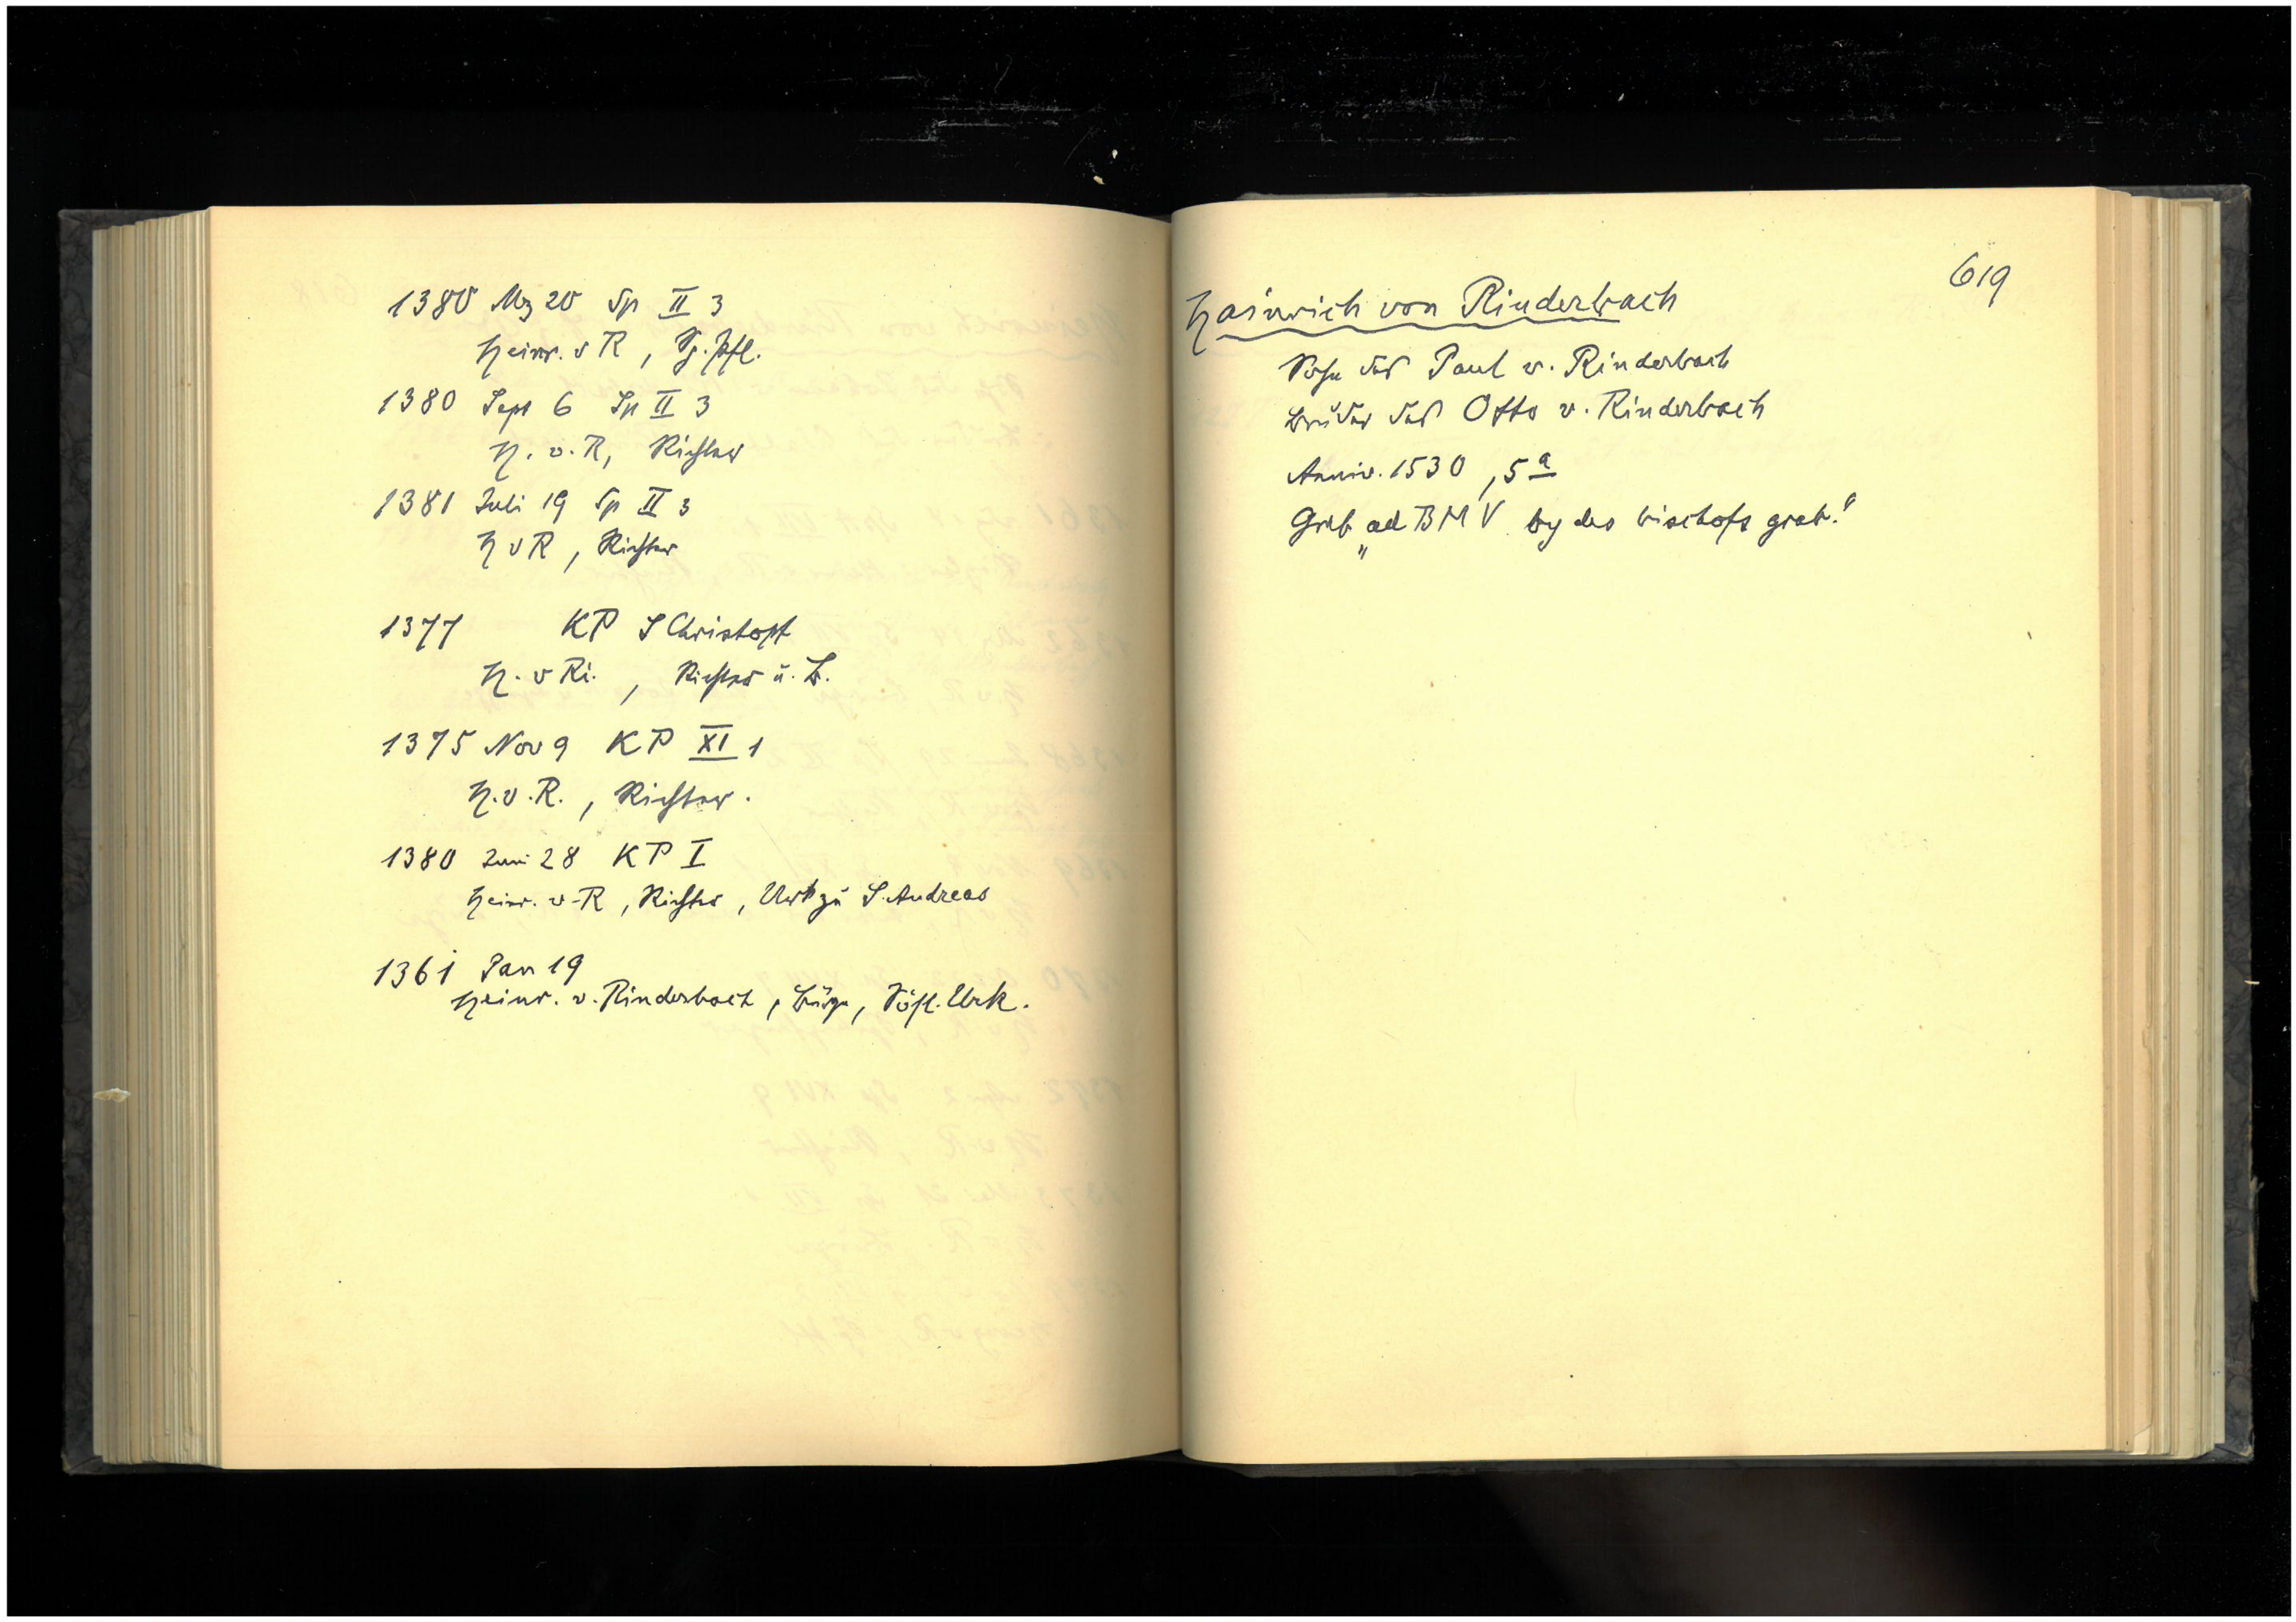 1380 Mz 20 Sp II 3
Heinr. v R, Sp. Pfl.
1380 Sept 6 Sp II 3
H. v. R, Richter
1381 Juli 19 Sp II 3
H v R, Richter
1377 KP S Christoph
H. v Ri., Richter u. B.
1375 Nov 9 KP XI 1
H. v. R., Richter.
1380 Juni 28 KP I
Heinr. v. R, Richter, Urk zu S. Andreas
1361 Jan 19
Heinr. v. Rinderbach, Bürge, Urk.
619
Hainrich von Rinderbach
Sohn des Paul v. Rinderbach
Bruder des Otto v. Rinderbach
Anniv. 1530, 5a
Grab „ad BMV by des bischofs grab."